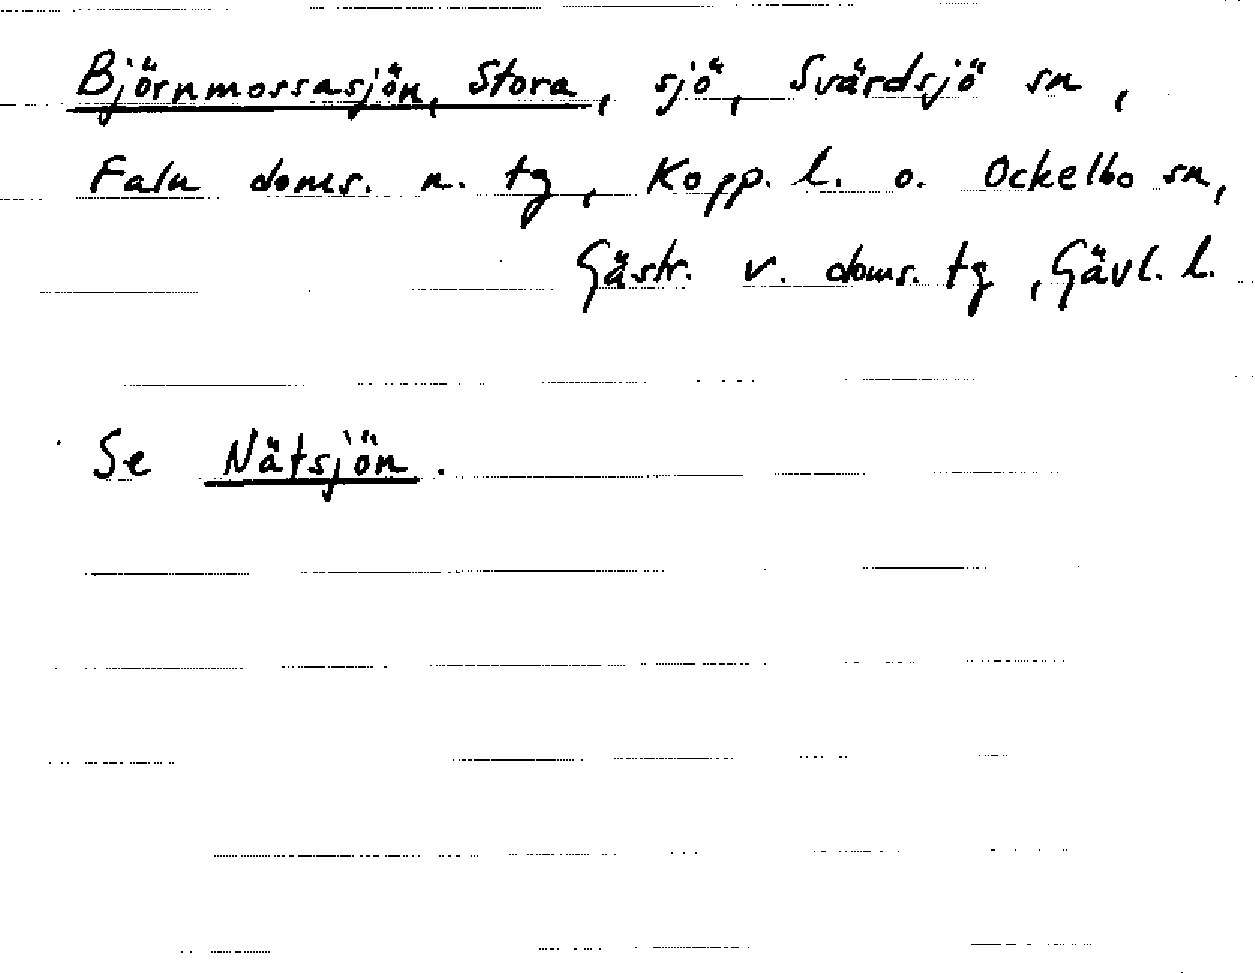 Björnmossasjön, Stora, sjö, Svärdsjö sn,
Falu doms. n. tg, Kopp. l. o. Ockelbo sn,
Gästr. v. doms. tg, Gävl. l.
Se Nätsjön.